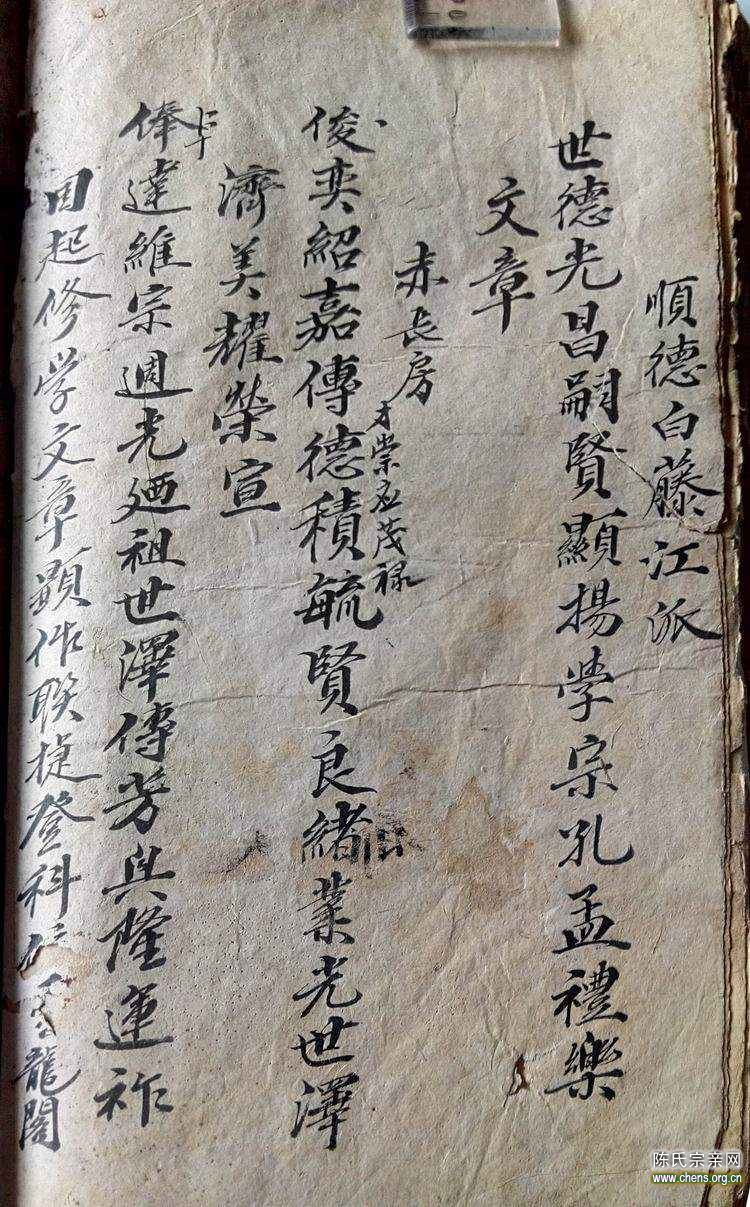 順德白藤江派
世德光昌嗣賢顯揚学宗孔孟禮樂
文章
赤长房
才崇应茂禄
俊奕紹嘉傳德積毓賢良緒業光世澤
濟美耀榮宣
俸達維宗週光廼祖世澤傳芳與隆運祚
起修学文章顕作联捷登科龍閣
陈氏宗亲网
www.chens.org.cn